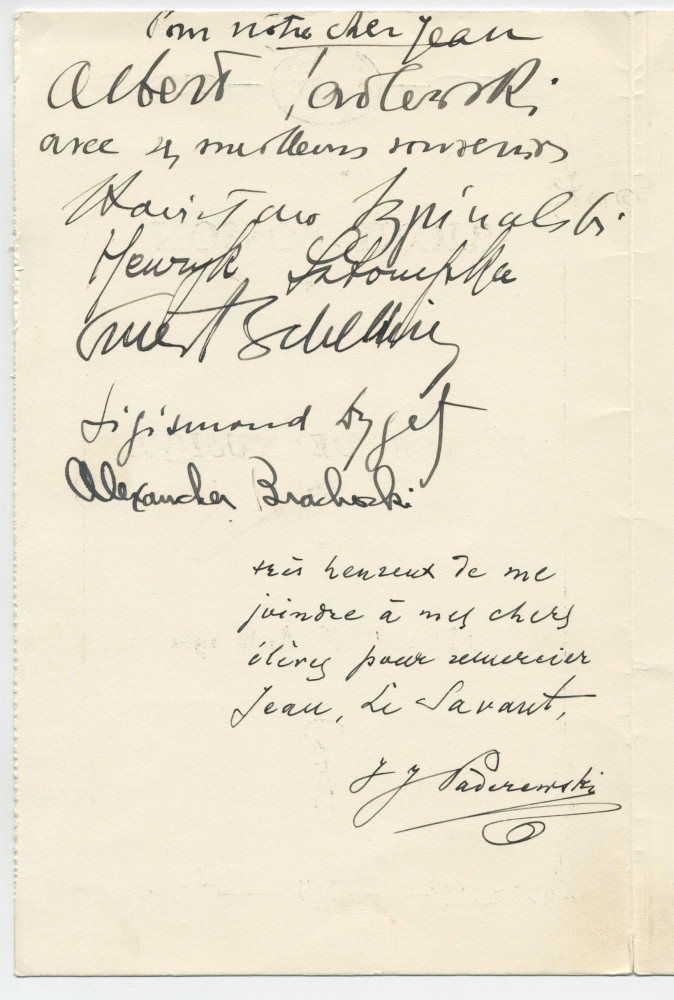 Pour notre cher Jean
Albert Tadlewski
avec ses meilleurs souvenirs
Stanislaw Szpinalski
Henryk Sztompka
Ernest Schelling
Sigismond Dygat
Alexander Brachocki
très heureux de me
joindre à mes chers
élèves pour remercier
Jean, Le Savant,
I J Paderewski